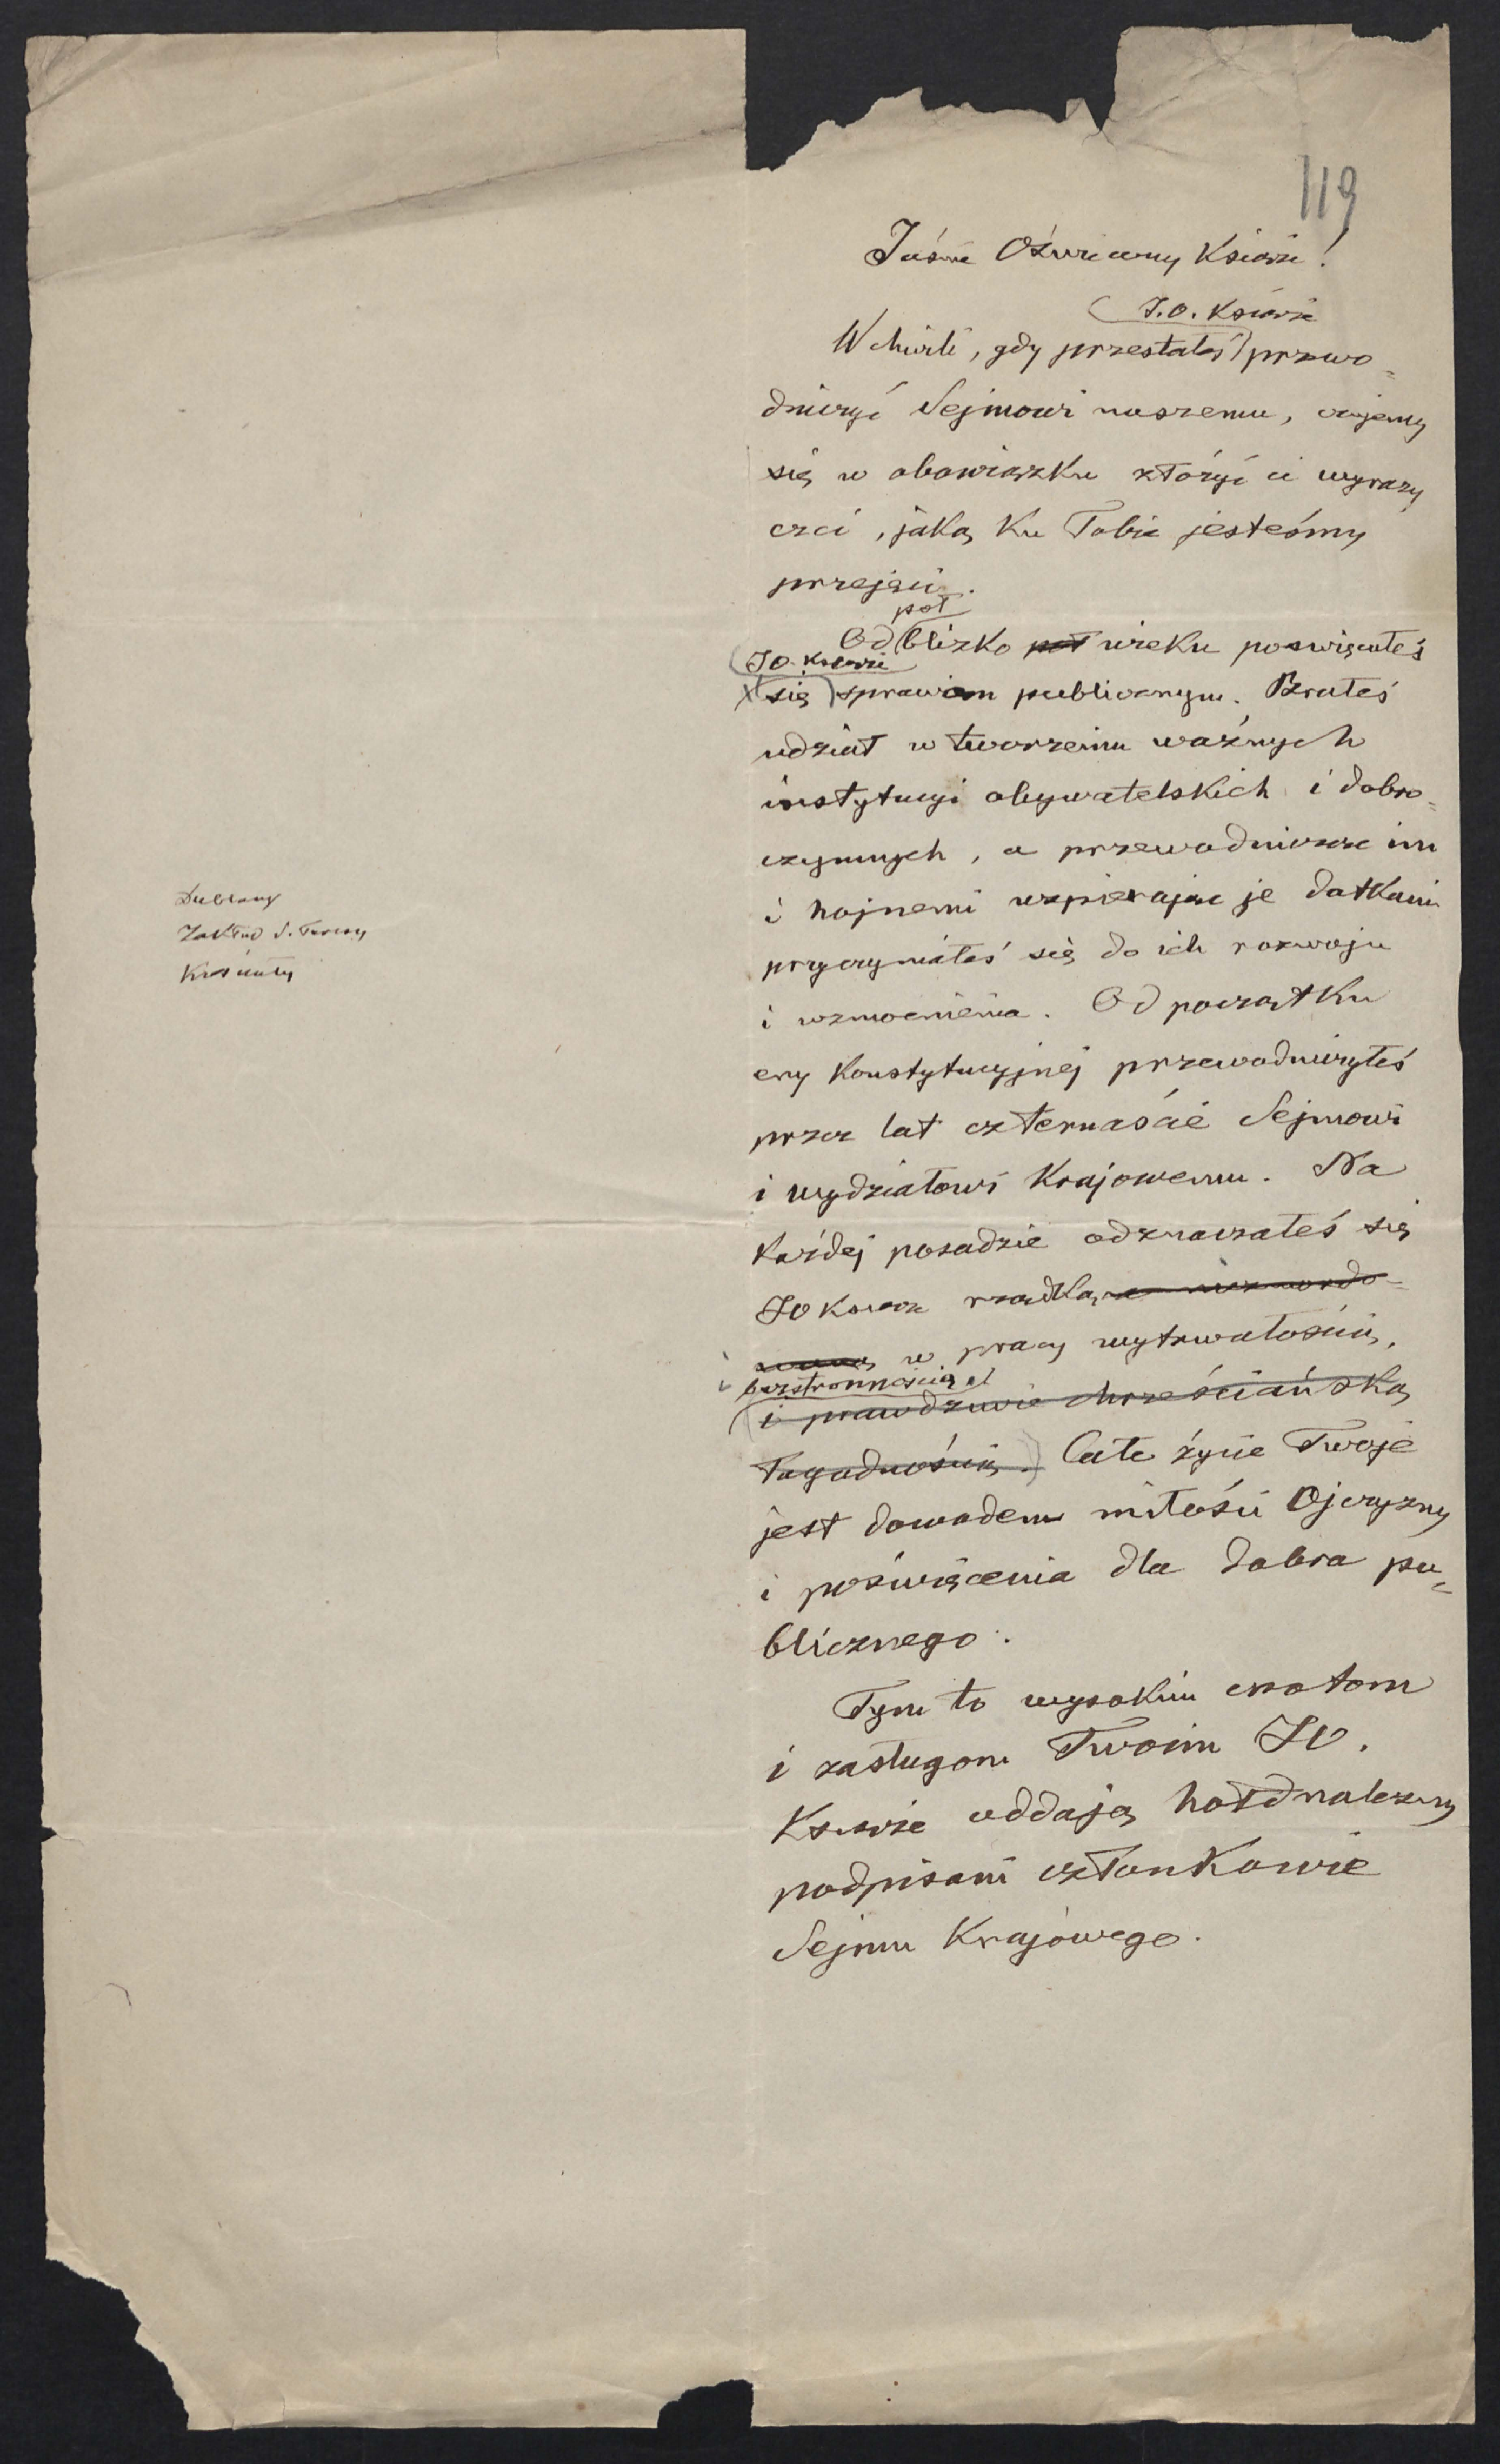 119
Jaśnie Oświecony Książe!
J.O. Książe
W chwili, gdy przestałeś przewo-
dniczyć Sejmowi naszemu, czujemy
się w obowiązku złożyć ci wyrazy
czci, jaką ku Tobie jesteśmy
przejęci.
pół
Od blizko pół wieku poświęcałeś
JO. Książe
się sprawom publicznym. Brałeś
udział w tworzeniu ważnych
instytucyi obywatelskich i dobro-
czynnych, a przewodnicząc im
i hojnemi wspierając je datkami
przyczyniałeś się do ich rozwoju
i wzmocnienia. Od początku
ery konstytucyjnej przewodniczyłeś
przez lat czternaście Sejmowi
i wydziałowi Krajowemu. Na
każdej posadzie odznaczałeś się
JO Książe rzadką a niezmordo-
waną w pracy wytrwałością,
i bezstronnością
i prawdziwie chrześciańską
łagodnością. Całe życie Twoje
jest dowodem miłości Ojczyzny
i poświęcenia dla dobra pu-
blicznego.
Tym to wysokim cnotom
i zasługom Twoim JO.
Książe oddają hołd należny
podpisani członkowie
Sejmu Krajowego.
Dublany
Zakład S. Teresy